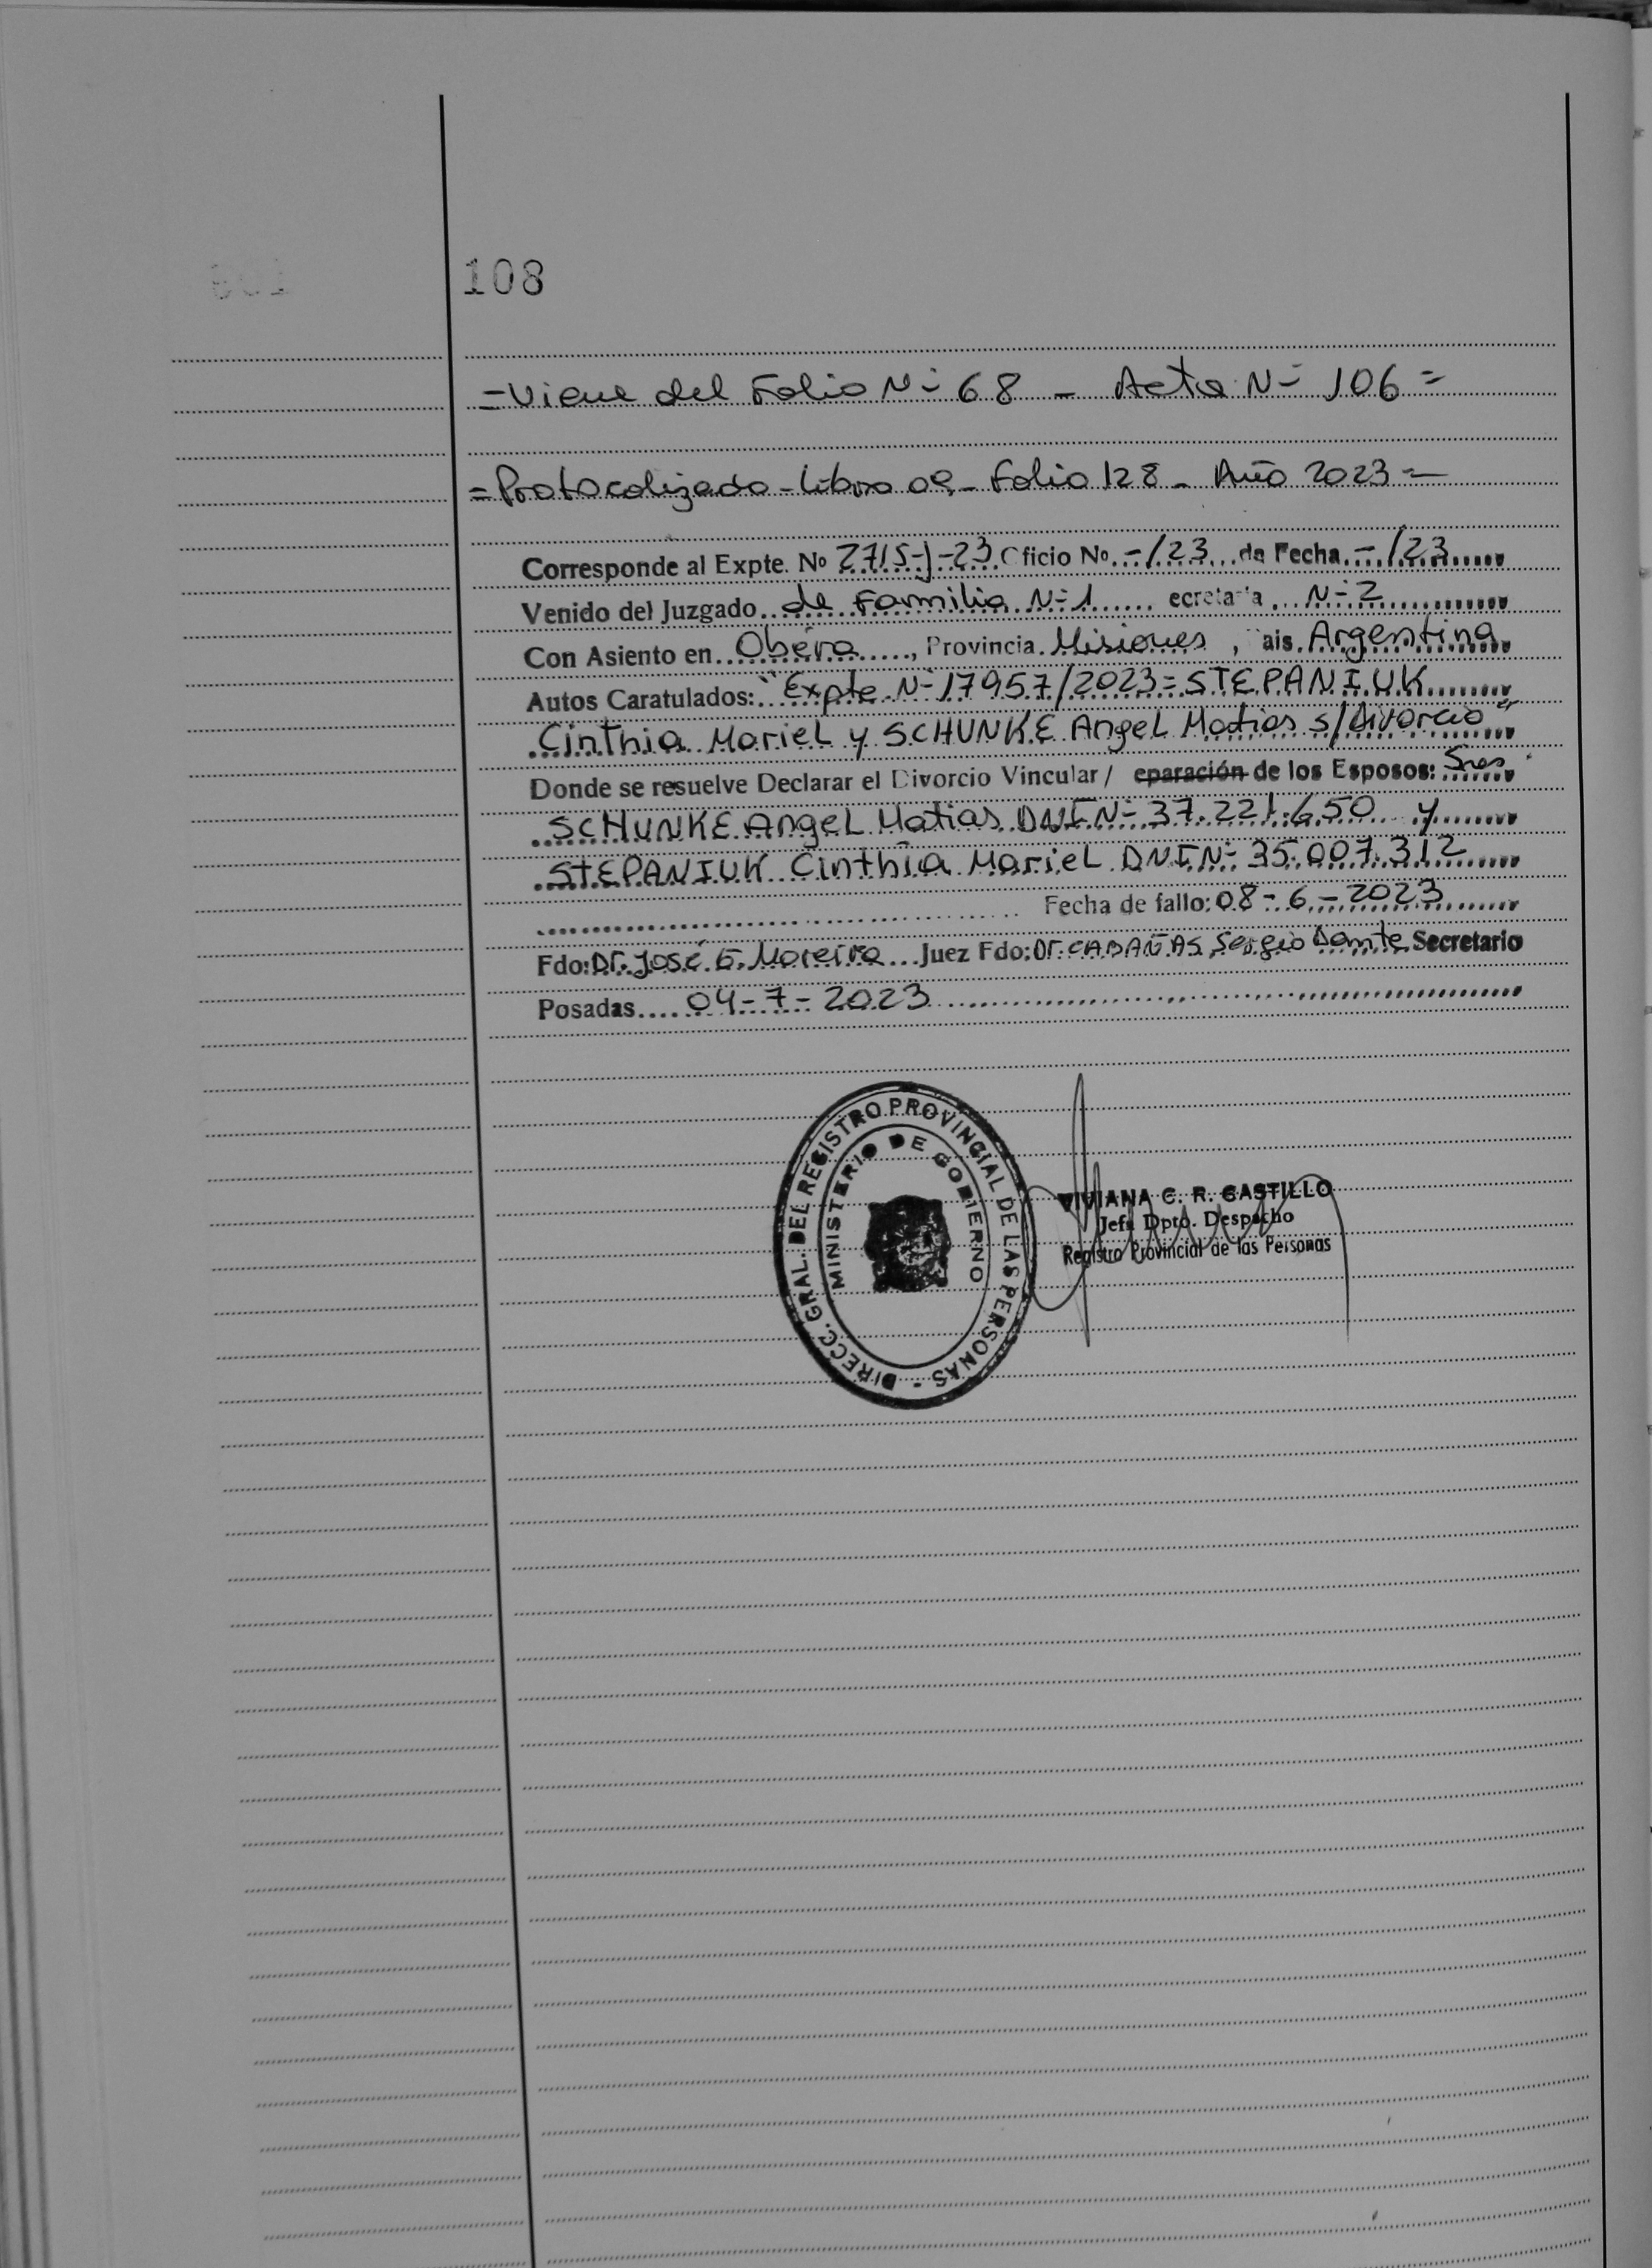 108
=Viene del Folio N- 68 - Acta N- 106=
=Protocolizado-Libro 09-Folio 128-Año 2023=
Corresponde al Expte. No 2715-J-23 Oficio No. -/23 de Fecha -/23
Venido del Juzgado de Familia N-1 ecretaria N-2
Con Asiento en Oberá, Provincia Misiones, ais Argentina
Autos Caratulados: "Expte N-17957/2023=STEPANIUK
Cinthia Mariel y SCHUNKE Angel Matias s/Divorcio"
Donde se resuelve Declarar el Divorcio Vincular / eparación de los Esposos: Sres
SCHUNKE Angel Matias DNI N- 37.221.650 y
STEPANIUK Cinthia Mariel DNI N- 35.007.312
Fecha de fallo: 08-6-2023
Fdo: Dr. José G. Moreira Juez Fdo: Dr. CABAÑAS Sergio Dante Secretario
Posadas 04-7-2023
DIRECC. GRAL. DEL REGISTRO PROVINCIAL DE LAS PERSONAS -
MINISTERIO DE GOBIERNO
VIVIANA C. R. CASTILLO
Jefa Dpto. Despacho
Registro Provincial de las Personas